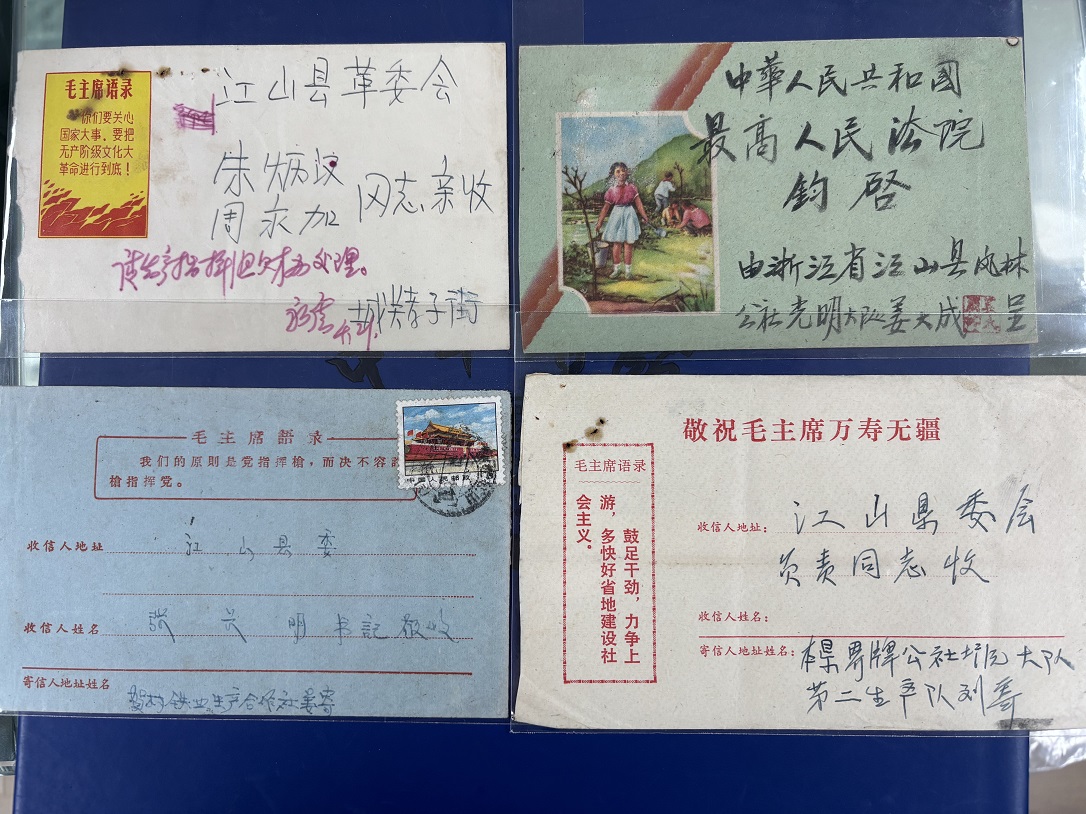 毛主席语录
你们要关心
国家大事，要把
无产阶级文化大
革命进行到底！
江山县革委会
朱炳
周永加 同志亲收
城关孝子街
中華人民共和國
最高人民法院
鈞启
由浙江省江山县凤林
公社光明大队姜大成 呈
毛主席語录
我们的原则是党指揮槍，而决不容
槍指揮党。
中国人民邮政
8
收信人地址
江山县委
收信人姓名
张 明 书記 敬收
寄信人地址姓名
贺村铁业生产合作社姜寄
敬祝毛主席万寿无疆
毛主席语录
鼓足干劲，力争上
游，多快好省地建设社
会主义。
收信人地址：
江山县委会
负责同志收
收信人姓名：
寄信人地址姓名：
本县界牌公社 大队
第二生产队刘寄